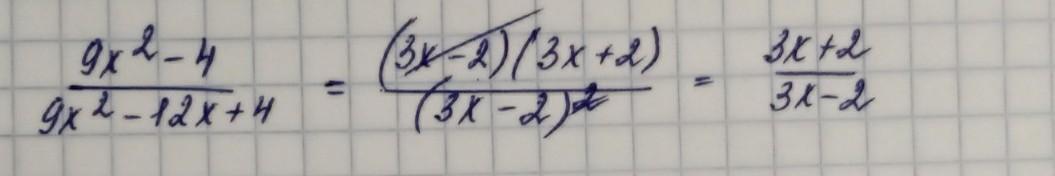 (9x² - 4)/(9x² - 12x + 4) = ((3x - 2)(3x + 2))/((3x - 2)²) = (3x + 2)/(3x - 2)